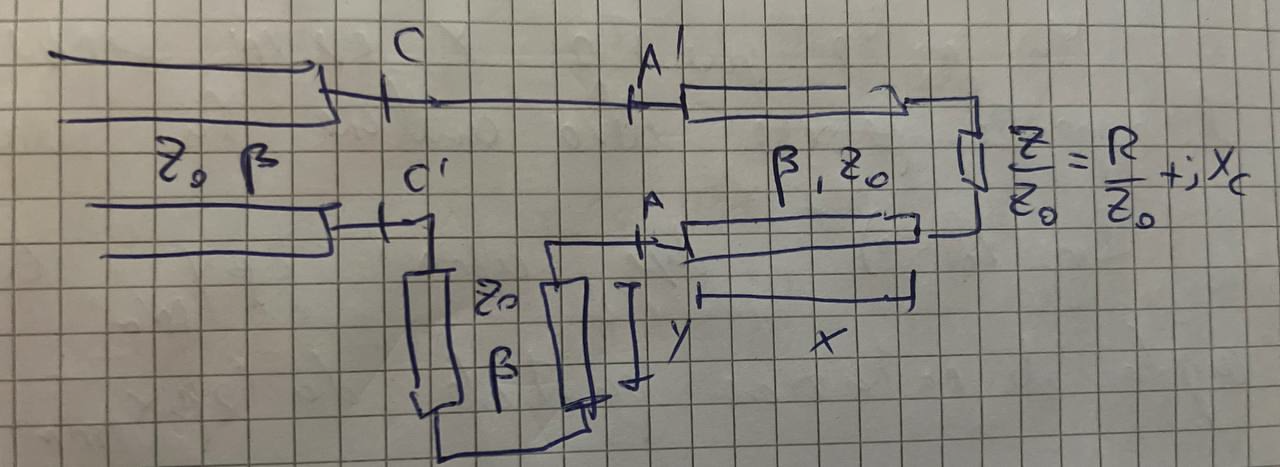 C
A'
Z₀ β
β, Z₀
Z/Z₀ = R/Z₀ + jX_c
C'
A
Z₀
β
y
x